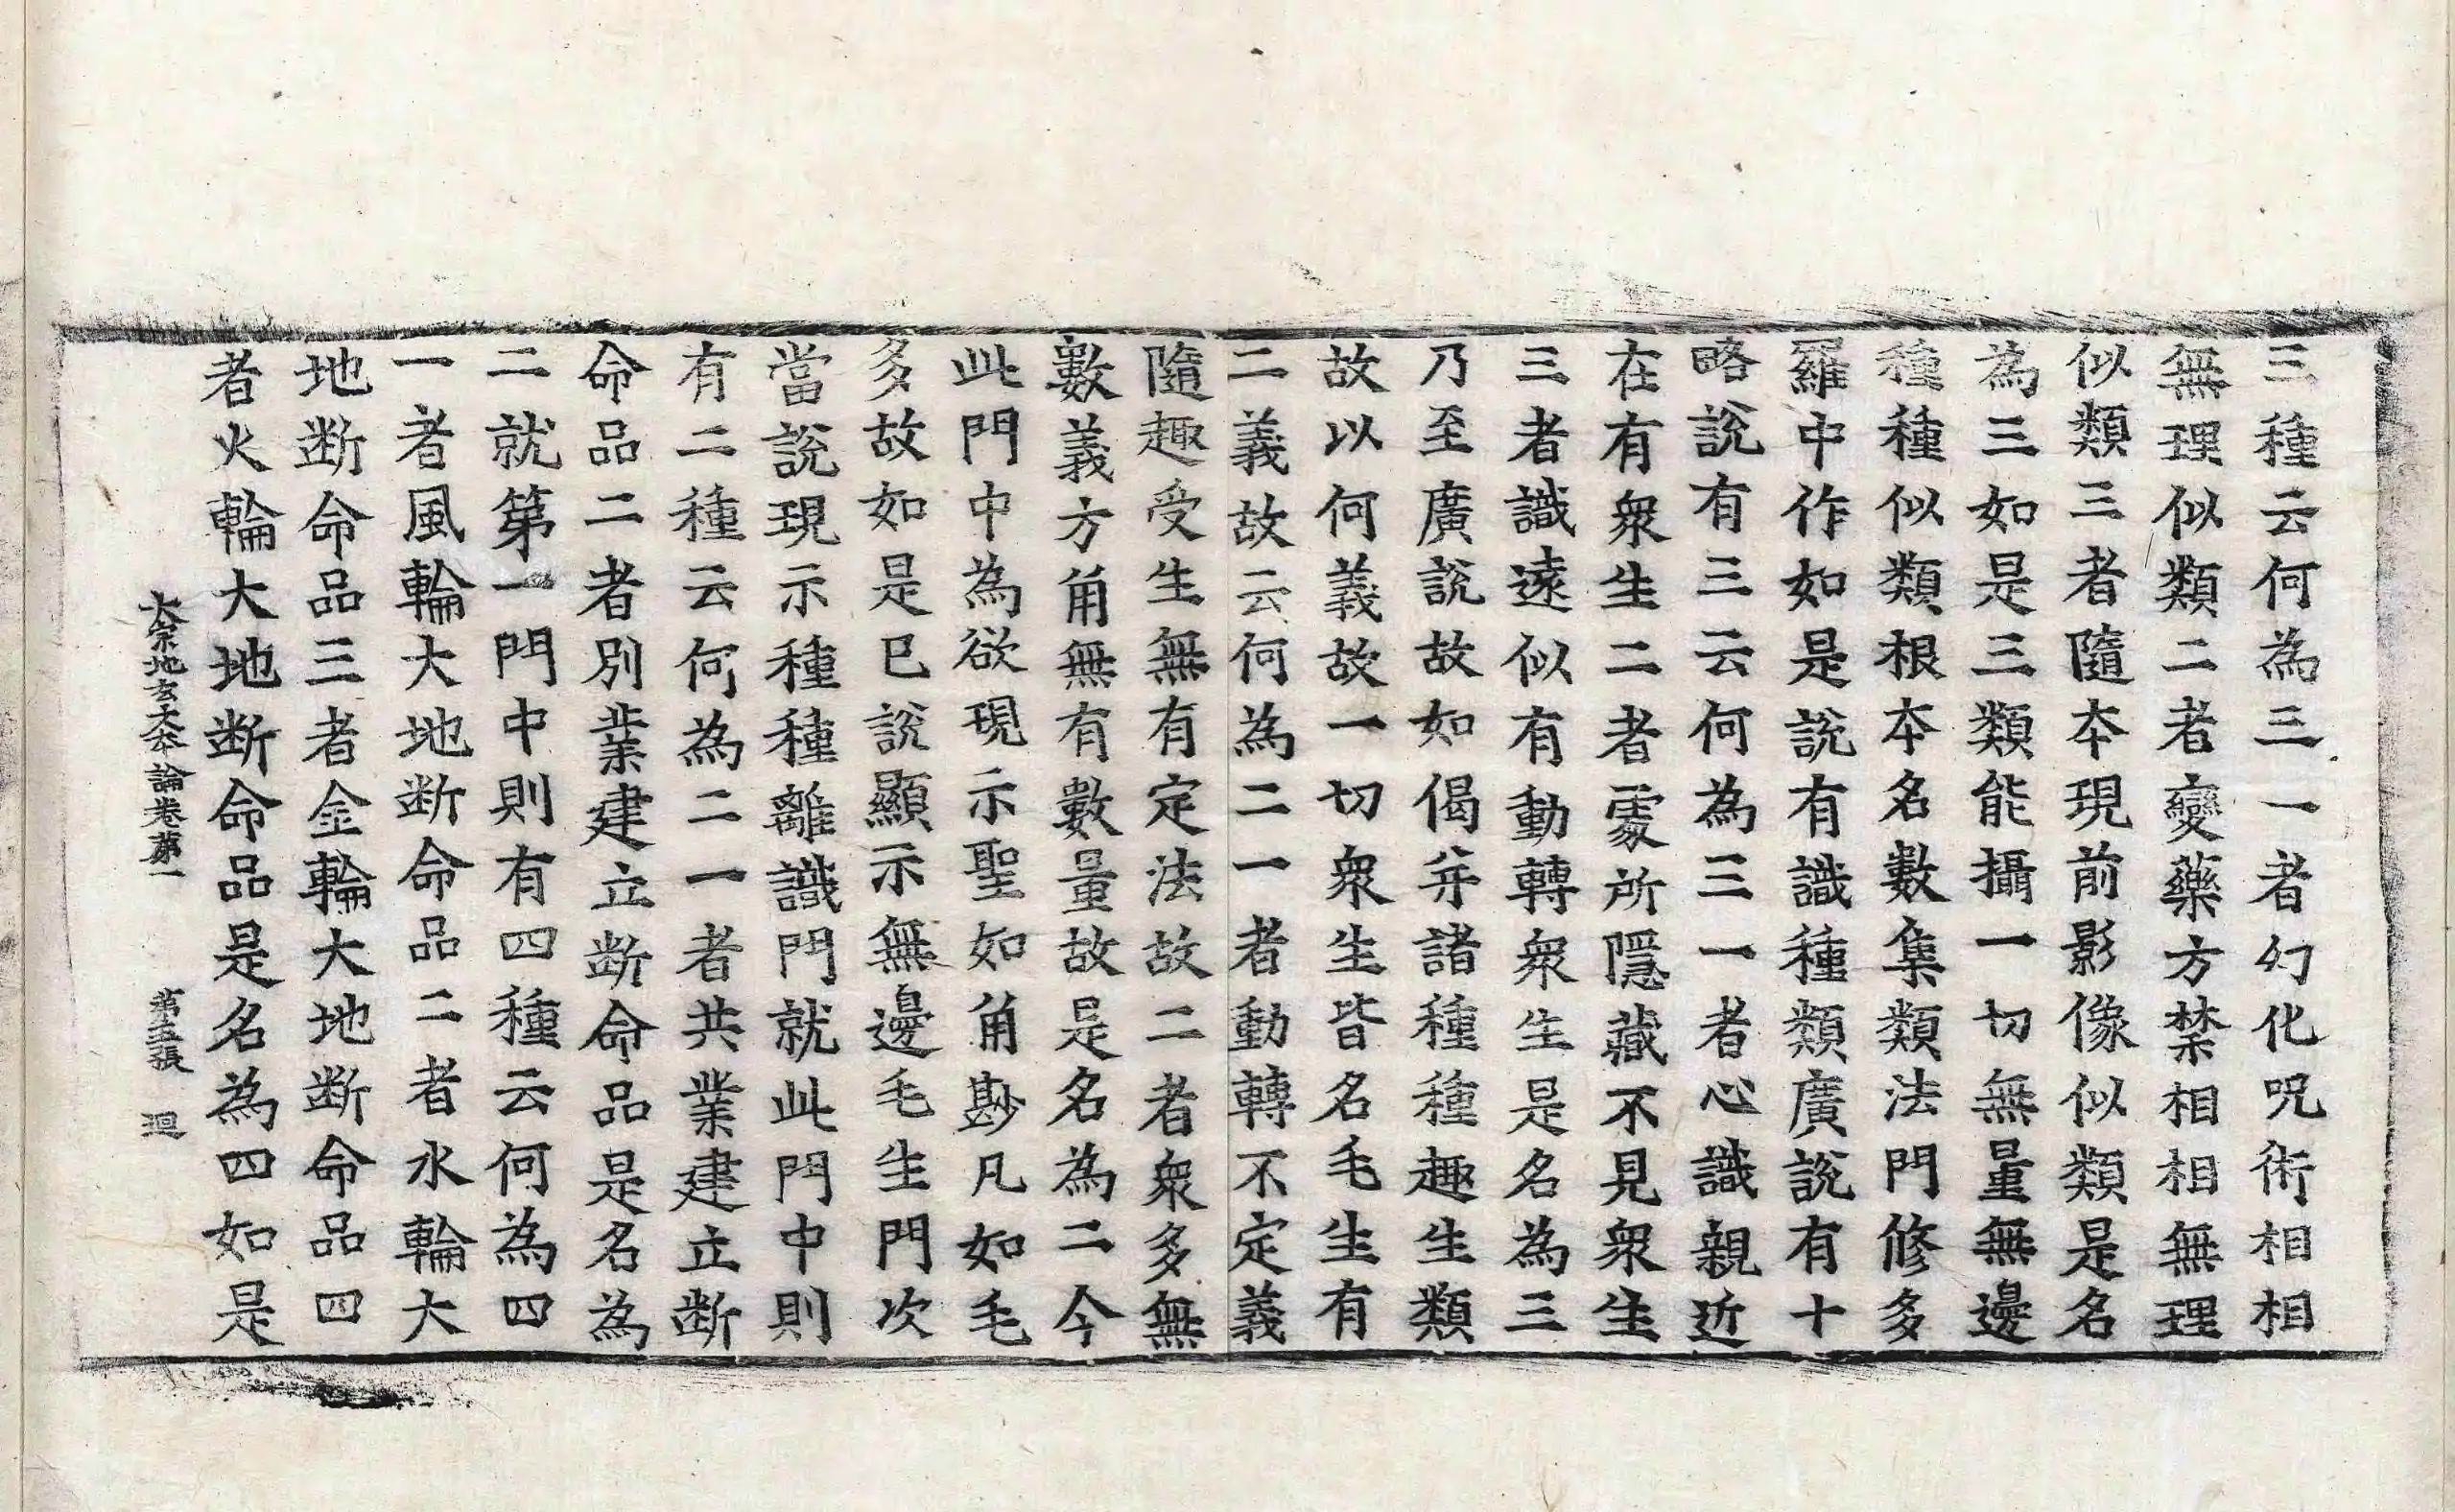 三種云何為三一者幻化呪術相相
無理似類二者變藥方禁相相無理
似類三者隨本現前影像似類是名
為三如是三類能攝一切無量無邊
種種似類根本名數集類法門修多
羅中作如是說有識種類廣說有十
略說有三云何為三一者心識親近
在有衆生二者霿所隱藏不見衆生
三者識遠似有動轉衆生是名為三
乃至廣說故如偈并諸種種趣生類
故以何義故一切衆生皆名毛生有
二義故云何為二一者動轉不定義
隨趣受生無有定法故二者衆多無
數義方角無有數量故是名為二今
此門中為欲現示聖如角尠凡如毛
多故如是已說顯示無邊毛生門次
當說現示種種離識門就此門中則
有二種云何為二一者共業建立断
命品二者別業建立断命品是名為
二就第一門中則有四種云何為四
一者風輪大地断命品二者水輪大
地断命品三者金輪大地断命品四
者火輪大地断命品是名為四如是
大宗地玄大本論卷第一 第五張 迴